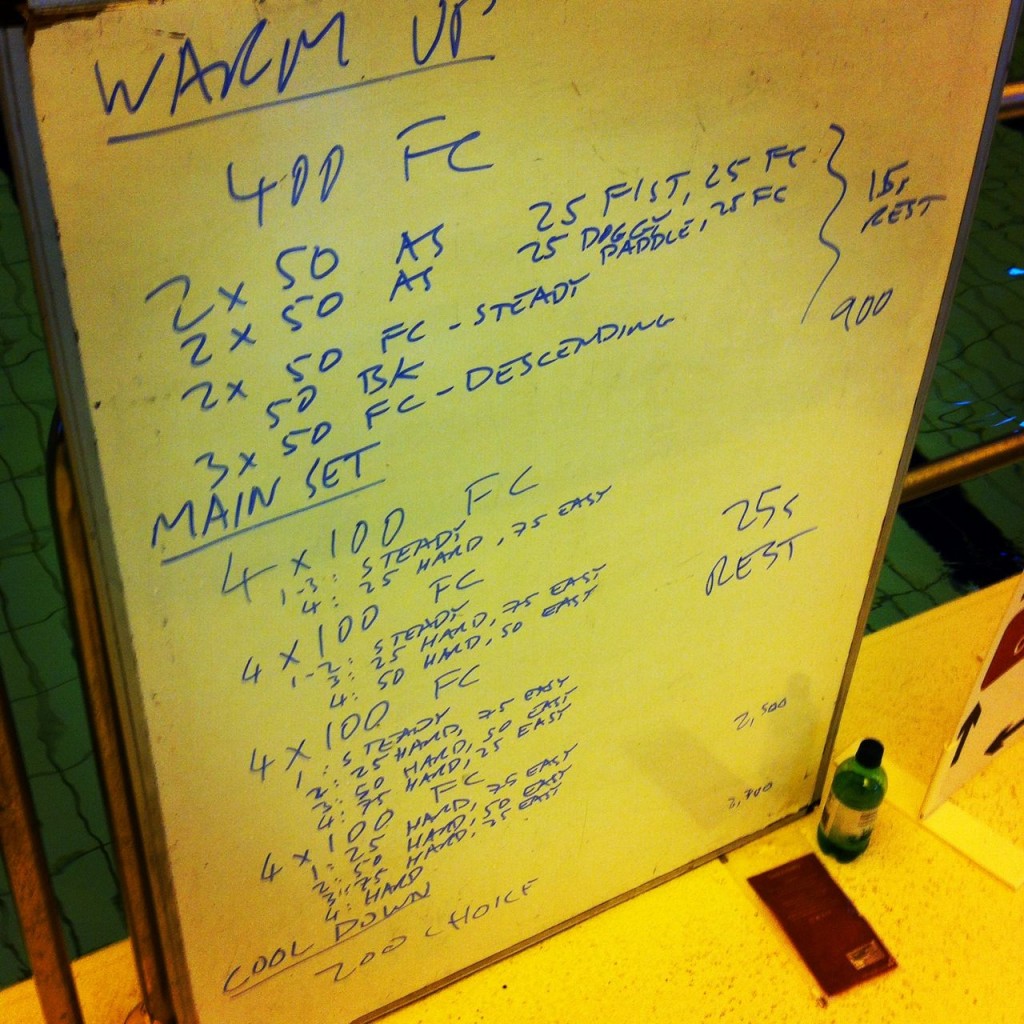 WARM UP
400 FC
2 x 50 AS 25 FIST, 25 FC
2 x 50 AS 25 DOGGY PADDLE, 25 FC
15s REST
2 x 50 FC - STEADY
50 BK
3 x 50 FC - DESCENDING
900
MAIN SET
4 x 100 FC
1-3: STEADY
4: 25 HARD, 75 EASY
25s REST
4 x 100 FC
1-2: STEADY
3: 25 HARD, 75 EASY
4: 50 HARD, 50 EASY
4 x 100 FC
1: STEADY
2: 25 HARD, 75 EASY
3: 50 HARD, 50 EASY
4: 75 HARD, 25 EASY
2,500
4 x 100 FC
1: 25 HARD, 75 EASY
2: 50 HARD, 50 EASY
3: 75 HARD, 25 EASY
4: HARD
COOL DOWN
200 CHOICE
2,700